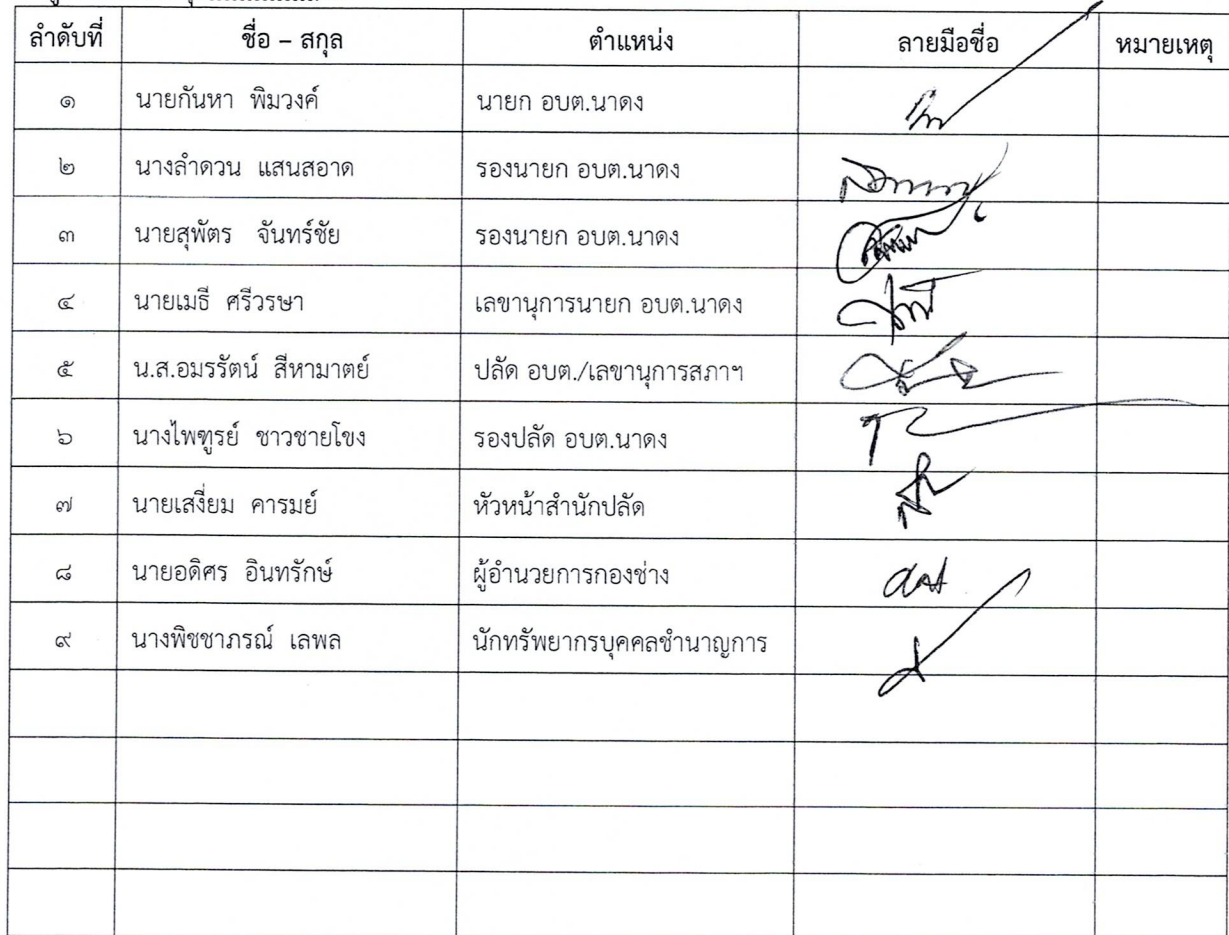 ลำดับที่ ชื่อ – สกุล ตำแหน่ง ลายมือชื่อ หมายเหตุ
๑ นายกันหา พิมวงค์ นายก อบต.นาดง
๒ นางลำดวน แสนสอาด รองนายก อบต.นาดง
๓ นายสุพัตร จันทร์ชัย รองนายก อบต.นาดง
๔ นายเมธี ศรีวรษา เลขานุการนายก อบต.นาดง
๕ น.ส.อมรรัตน์ สีหามาตย์ ปลัด อบต./เลขานุการสภาฯ
๖ นางไพฑูรย์ ชาวชายโขง รองปลัด อบต.นาดง
๗ นายเสงี่ยม คารมย์ หัวหน้าสำนักปลัด
๘ นายอดิศร อินทรักษ์ ผู้อำนวยการกองช่าง
๙ นางพิชชาภรณ์ เลพล นักทรัพยากรบุคคลชำนาญการ